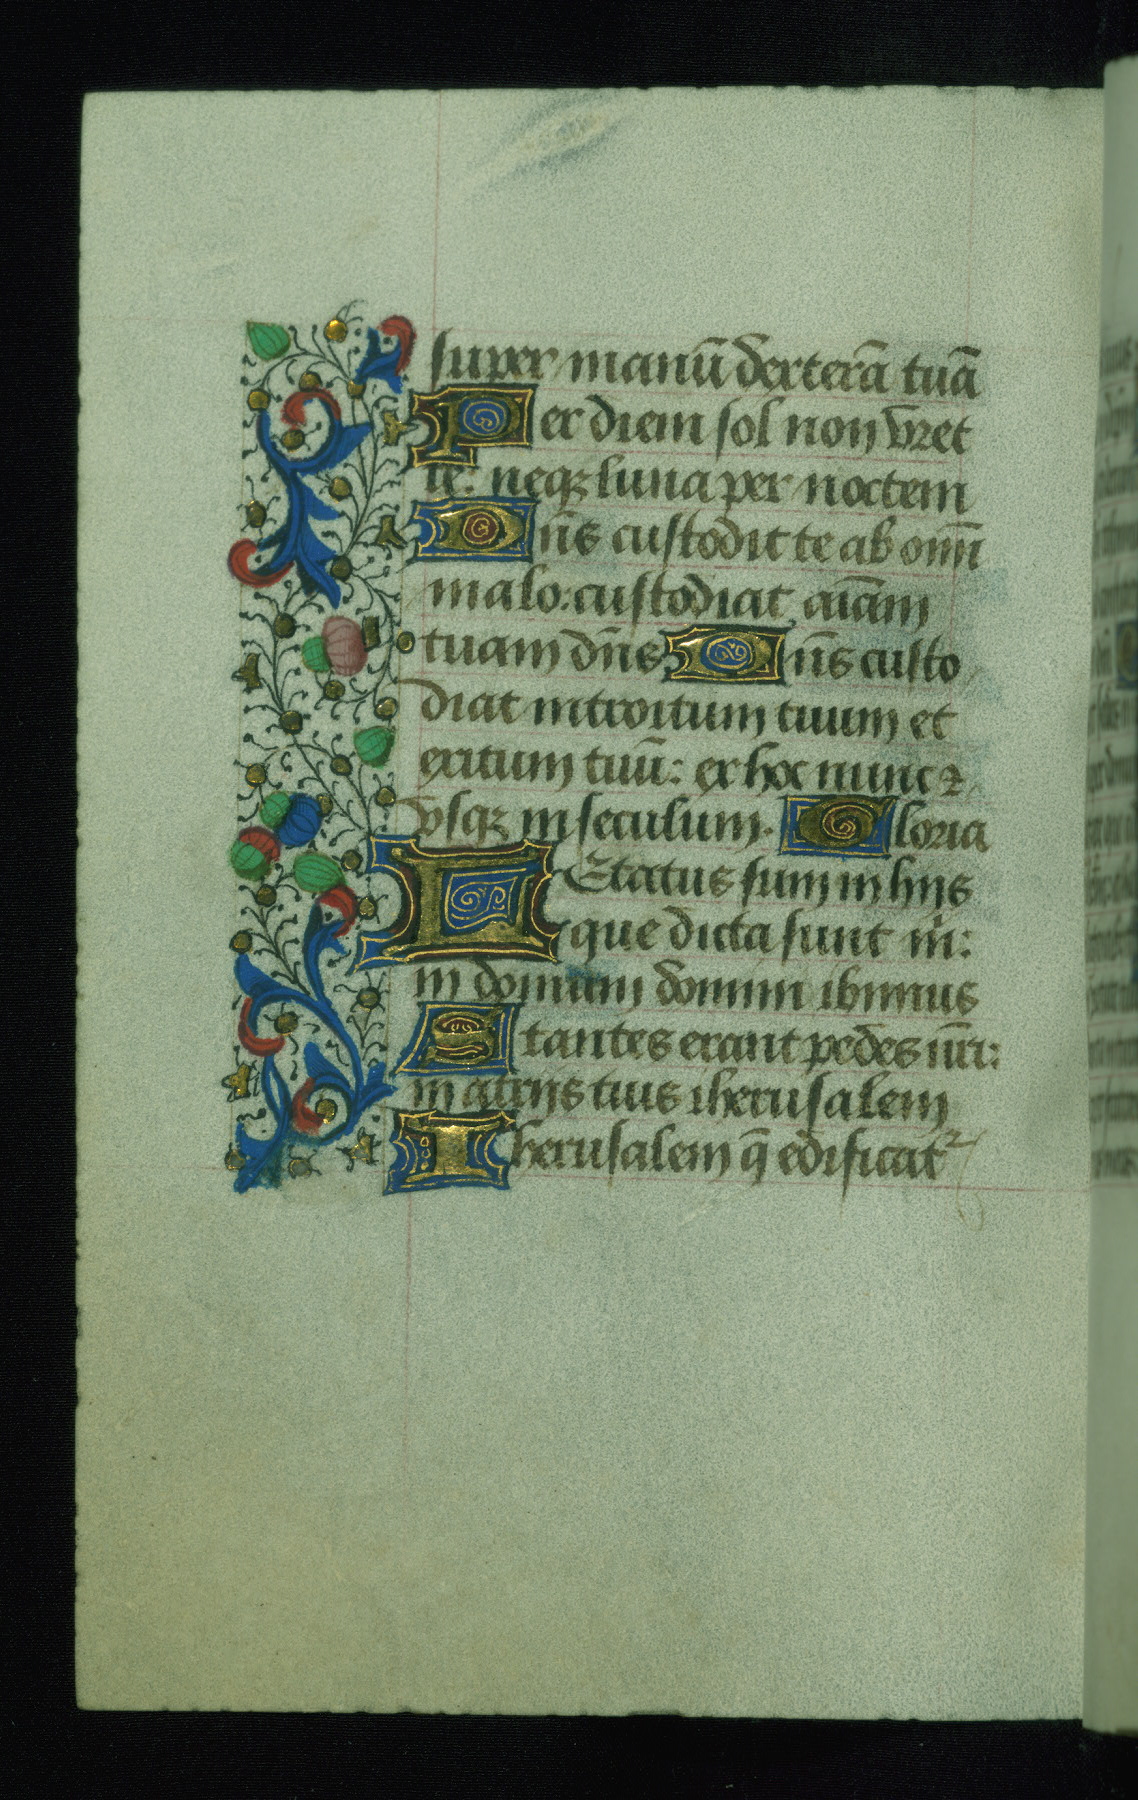 super manū dexterā tuā
Per diem sol non vret
te: neqꝫ luna per noctem
Dn̄s custodit te ab om̄i
malo: custodiat aīam
tuam dn̄s Dn̄s custo
diat introitum tuum et
exitum tuū: ex hoc nunc ⁊
vsqꝫ in seculum. Gloria
LEtatus sum in hijs
que dicta sunt m̄:
in domum domini ibimus
Stantes erant pedes nr̄i:
in atrijs tuis iherusalem
Iherusalem q̄ edificat᷑